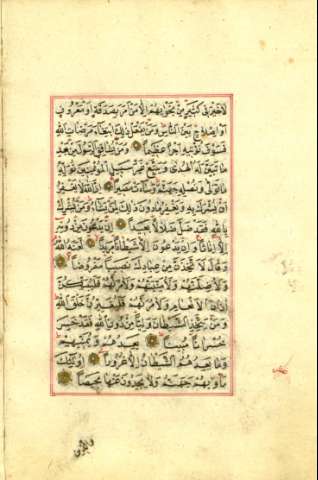 لَا خَيْرَ فِي كَثِيرٍ مِنْ نَجْوٰيهُمْ اِلَّا مَنْ اَمَرَ بِصَدَقَةٍ اَوْ مَعْرُوفٍ
اَوْ اِصْلَاحٍ بَيْنَ النَّاسِ وَمَنْ يَفْعَلْ ذٰلِكَ ابْتِغَاءَ مَرْضَاتِ اللهِ
فَسَوْفَ نُؤْتِيهِ اَجْرًا عَظِيمًا وَمَنْ يُشَاقِقِ الرَّسُولَ مِنْ بَعْدِ
مَا تَبَيَّنَ لَهُ الْهُدٰى وَيَتَّبِعْ غَيْرَ سَبِيلِ الْمُؤْمِنِينَ نُوَلِّهِ
مَا تَوَلّٰى وَنُصْلِهِ جَهَنَّمَ وَسَاءَتْ مَصِيرًا اِنَّ اللهَ لَا يَغْفِرُ
اَنْ يُشْرَكَ بِهِ وَيَغْفِرُ مَا دُونَ ذٰلِكَ لِمَنْ يَشَاءُ وَمَنْ يُشْرِكْ
بِاللهِ فَقَدْ ضَلَّ ضَلَالًا بَعِيدًا اِنْ يَدْعُونَ مِنْ دُونِهِ
اِلَّا اِنَاثًا وَاِنْ يَدْعُونَ اِلَّا شَيْطَانًا مَرِيدًا لَعَنَهُ اللهُ
وَقَالَ لَاَتَّخِذَنَّ مِنْ عِبَادِكَ نَصِيبًا مَفْرُوضًا
وَلَاُضِلَّنَّهُمْ وَلَاُمَنِّيَنَّهُمْ وَلَاٰمُرَنَّهُمْ فَلَيُبَتِّكُنَّ
اٰذَانَ الْاَنْعَامِ وَلَاٰمُرَنَّهُمْ فَلَيُغَيِّرُنَّ خَلْقَ اللهِ
وَمَنْ يَتَّخِذِ الشَّيْطَانَ وَلِيًّا مِنْ دُونِ اللهِ فَقَدْ خَسِرَ
خُسْرَانًا مُبِينًا يَعِدُهُمْ وَيُمَنِّيهِمْ
وَمَا يَعِدُهُمُ الشَّيْطَانُ اِلَّا غُرُورًا اُولٰئِكَ
مَأْوٰيهُمْ جَهَنَّمُ وَلَا يَجِدُونَ عَنْهَا مَحِيصًا